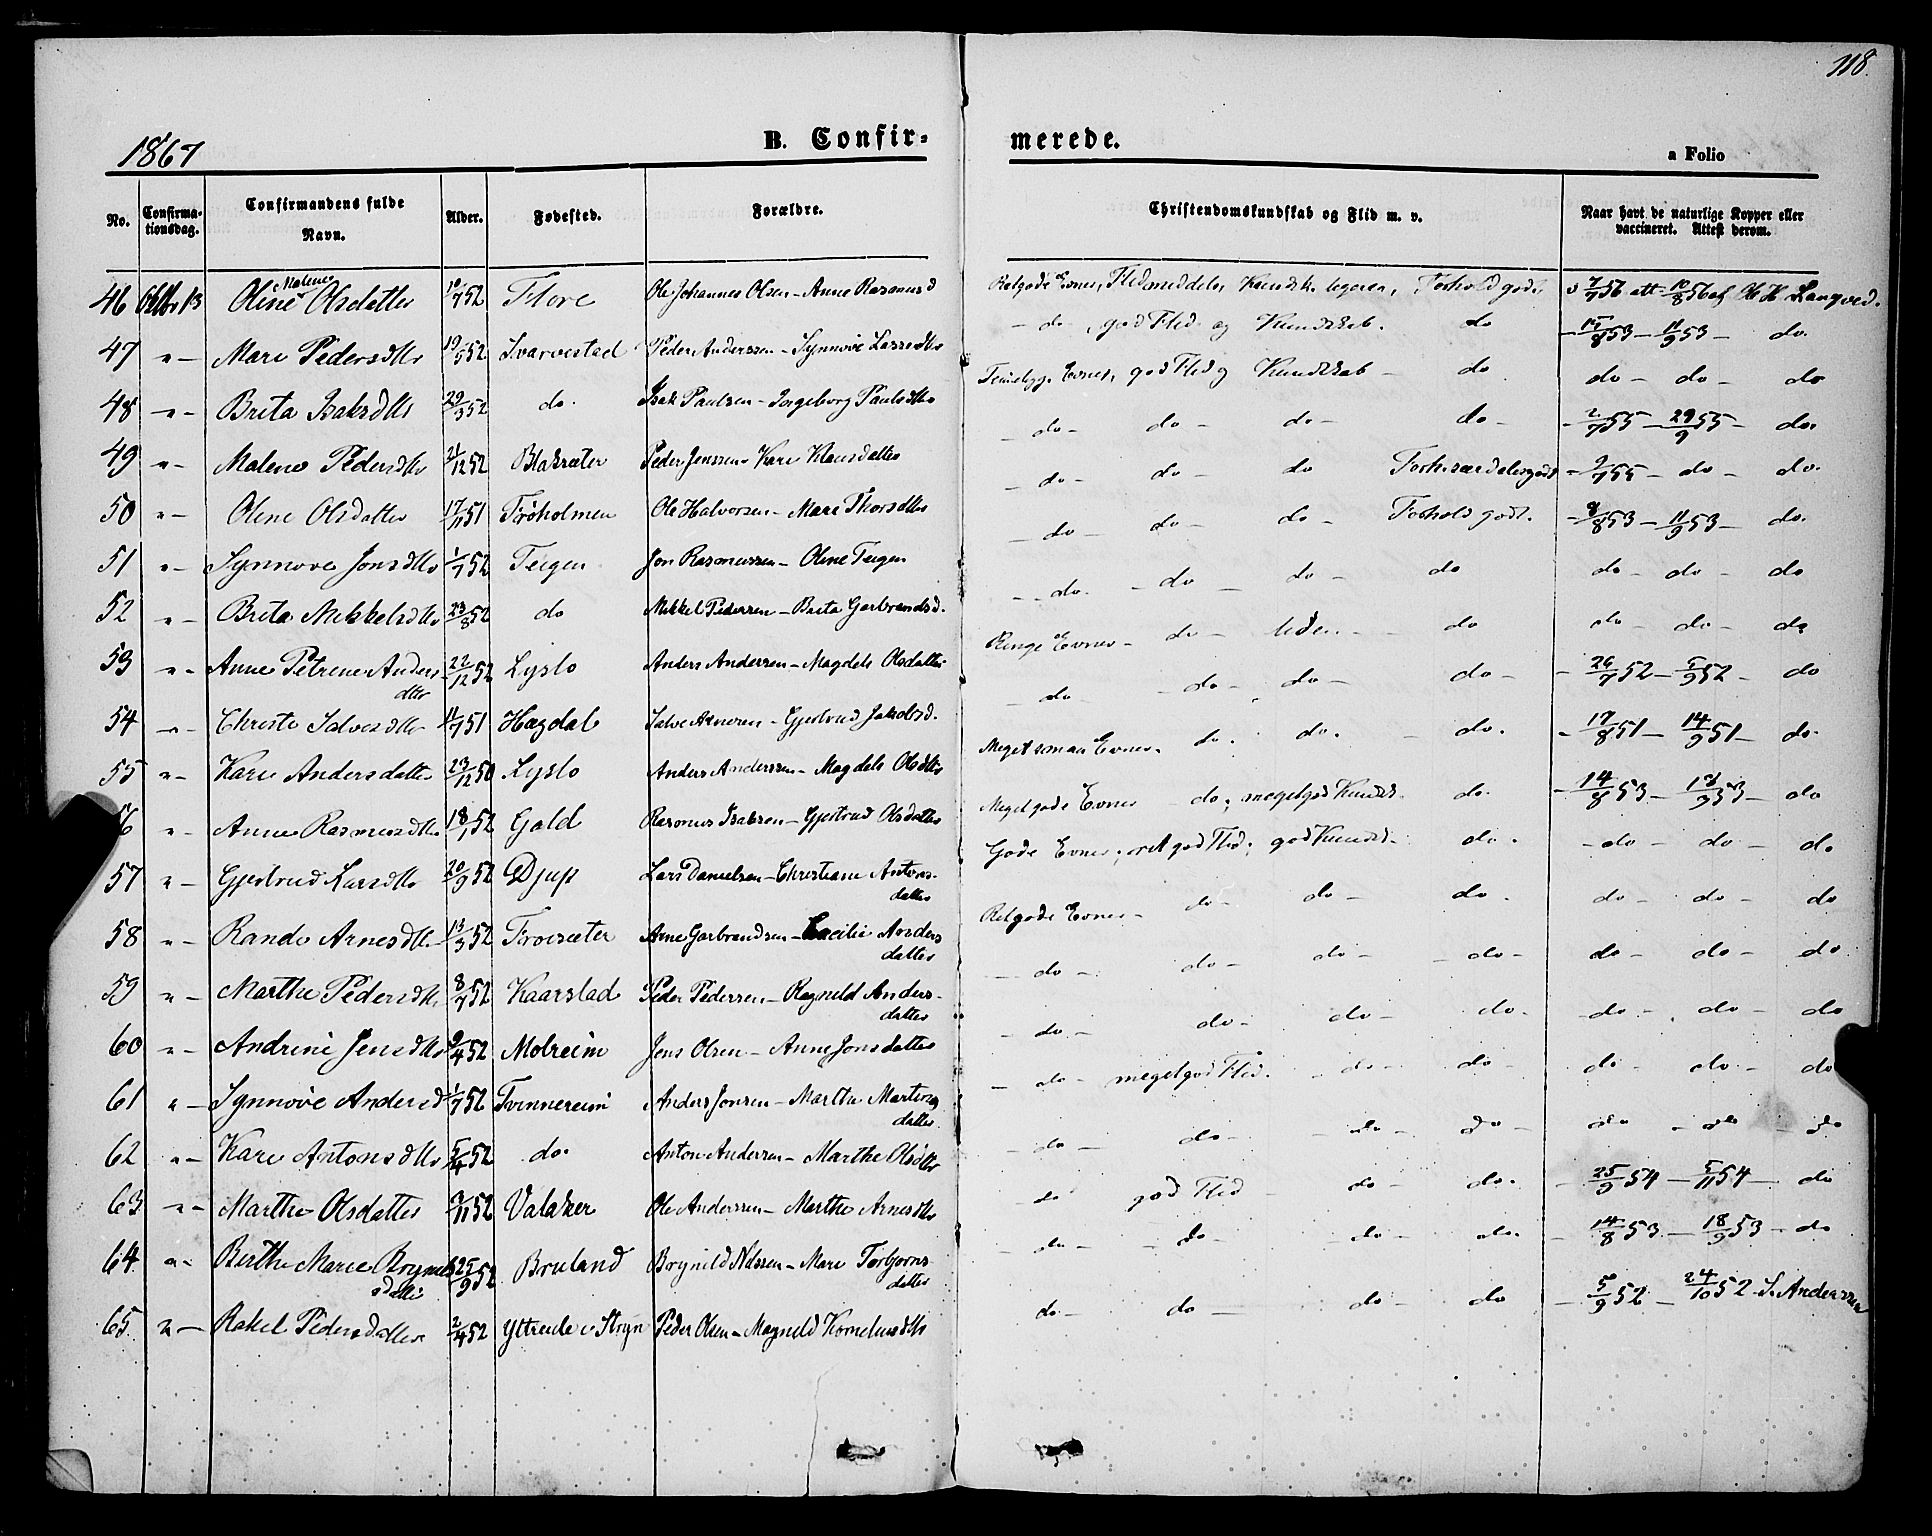 118.
1867
B. Confir-
merede.
a Folio
No.
Confirma-
tionsdag.
Confirmandens fulde
Navn.
Alder.
Fødested.
Forældre.
Christendomskundskab og Flid m. v.
Naar havt de naturlige Kopper eller
vaccineret. Attest derom.
46 Oktbr 13 Oline Malene Olsdatter 10/7 52 Flore Ole Johannes Olsen - Anne Rasmusd Retgode Evner, Flid Forhold godt, v 7/7 56 att 10/8 56 af Ole H Langved.
47 " - Mari Pedersdtr 19/5 52 Svarvestad Peder Anderssen - Synnøve Lassedtr - do, god Flid og Kundskab. do - 15/8 53 - 11/9 53 - do.
48 " - Brita Isaksdtr 29/3 52 do. Isak Paulsen - Ingeborg Paulsdtr Evner, god Flid og Kundskab - do do - do - do
49 " - Malene Pedersdtr 21/12 52 Blaksæter Peder Jenssen - Kari Klausdatter - do - do - do - do - - 2/7 55 - 29/9 55 - do.
50 " - Oline Olsdatter 17/11 51 Frøholmen Ole Halvorsen - Mari Thorsdtr - do - do - do Forh. særdeles godt - 9/7 55 - do - do.
51 " - Synnøve Jonsdtr 1/7 52 Teigen Jon Rasmussen - Oline Teigen - do - do - do - Forhold godt. - 8/8 53 - 11/9 53 - do.
52 " - Brita Mikkelsdtr 23/8 52 do Mikkel Pedersen - Brita Garbrandsd. - do. - do - do - do do - do - do
53 " - Anne Petrine Anders
dtr 22/12 52 Lyslo Anders Andersen - Magdele Olsdatter Ringe Evner - do - liden - do do - do - do
54 " - Christi Salvesdtr 11/7 51 Hagdal Salve Arnesen - Gjertrud Jakobsd. - do - do - do - do - - 26/7 52 - 5/9 52 - do
55 " - Kari Andersdatter 23/12 50 Lyslo Anders Anderssen - Magdele Olsdtr Meget smaa Evner. do. do. - do. - 17/8 51 - 14/9 51 - do.
56 " - Anne Rasmusdtr 18/1 52 Gald Rasmus Isaksen - Gjertrud Olsdatter Meget gode Evner - do, meget god Kundsk. do. - 14/8 53 - 18/9 53 - do
57 " - Gjertrud Larsdtr 20/9 52 Djup Lars Danielsen - Christiane Antons-
datter Gode Evner, ret god Flid, god Kundsk. do. - do - do - do
58 " - Rande Arnesdtr 13/3 52 Froesæter Arne Garbrandsen - Cecilie Anders
datter Retgode Evner - do - do - do. do - do - do
59 " - Marthe Pedersdtr 8/7 52 Kaarstad Peder Pedersen - Ragnild Anders-
datter - do - do - do - - do - do - do - do
60 " - Andrine Jensdtr 9/4 52 Molreim Jens Olsen - Anne Jonsdatter - do - do - do - do - - do - do - do
61 " - Synnøve Andersd 1/7 52 Tvinnereim Anders Jonsen - Marthe Martins
datter - do - meget god Flid. - do - do - do - do - do
62 " - Kari Antonsdtr 5/4 52 do. Anton Andersen - Marthe Olsdtr - do - do - - do - do - do - do - do
63 " - Marthe Olsdatter 9/11 52 Valaker Ole Anderssen - Marthe Arnesdtr - do god Flid - do - do. - 25/9 54 - 5/11 54 - do
64 " - Birthe Marie Brynild
sdatter 25/9 52 Bruland Brynild Nilssen - Mari Torbjørns
datter - do - - do - - do - do. - 14/8 53 - 18/9 53 - do
65 " - Rakel Pedersdatter 2/4 52 Ytreeide i Stryn Peder Olsen - Magnild Korneliusdtr do - do - do - do - 5/9 52 - 24/10 52 - S. Anderssen